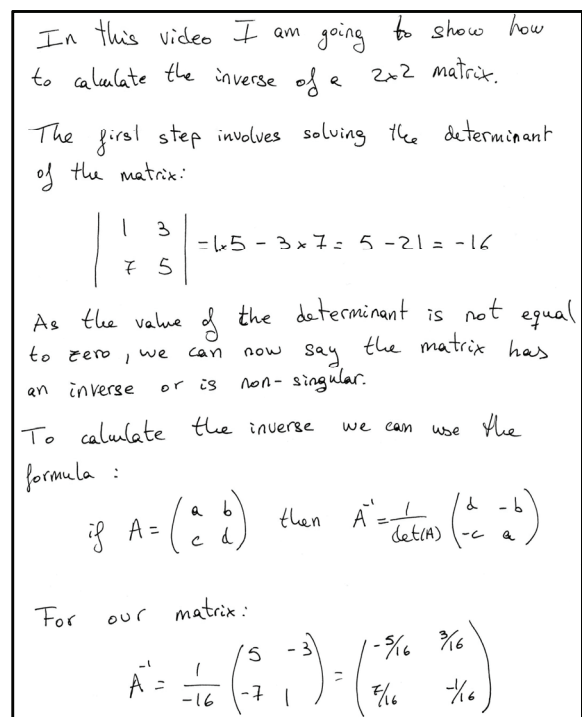 In this video I am going to show how
to calculate the inverse of a 2x2 matrix.
The first step involves solving the determinant
of the matrix:
| 1 3 |
| 7 5 | = 1x5 - 3x7 = 5 - 21 = -16
As the value of the determinant is not equal
to zero, we can now say the matrix has
an inverse or is non-singular.
To calculate the inverse we can use the
formula:
if A = (a b; c d) then A⁻¹ = 1/det(A) (d -b; -c a)
For our matrix:
A⁻¹ = 1/-16 (5 -3; -7 1) = (-5/16 3/16; 7/16 -1/16)